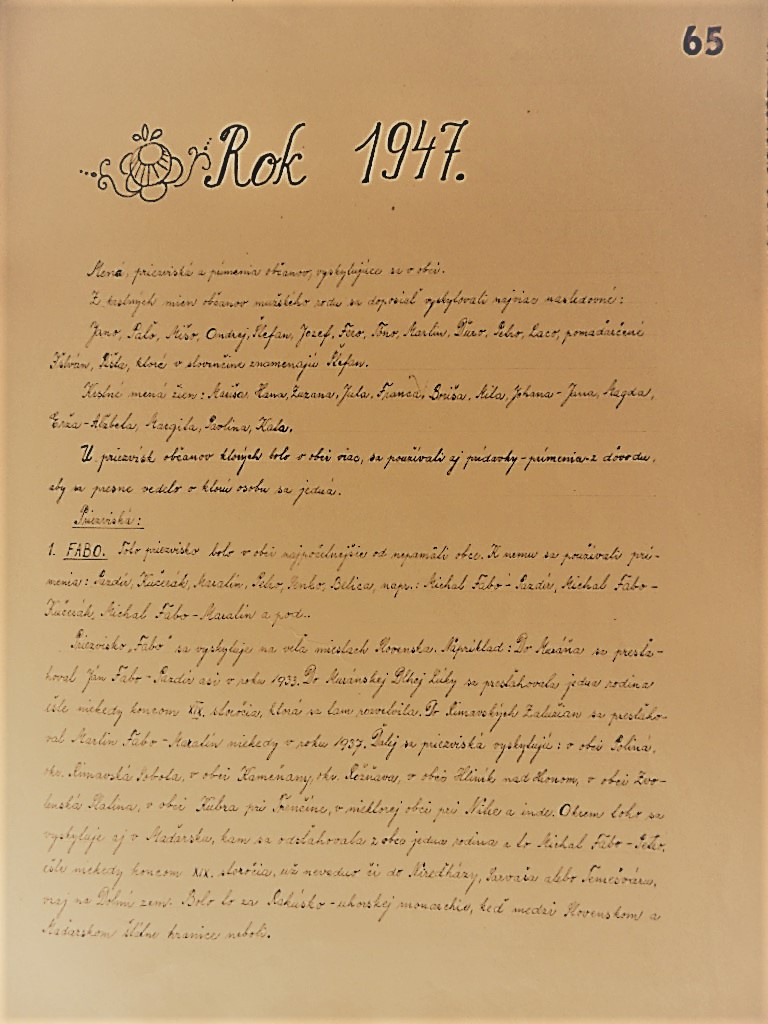 65
Rok 1947.
Mená, priezviská a prímenia občanov, vyskytujúce sa v obci.
Z krstných mien občanov mužského rodu sa doposiaľ vyskytovali najviac nasledovné:
Jano, Paľo, Mišo, Ondrej, Štefan, Jozef, Fero, Tóno, Martin, Ďuro, Peťro, Laco, pomaďarčené
István, Pišta, ktoré v slovenčine znamenajú Štefan.
Krstné mená žien: Mariša, Hana, Zuzana, Jula, Franca, Boriša, Mila, Johana-Jana, Magda,
Erža-Alžbeta, Margita, Paolína, Kata.
U priezvisk občanov ktorých bolo v obci viac, sa používali aj prídavky-prímenia-z dôvodu,
aby sa presne vedelo o ktorú osobu sa jedná.
Priezviská:
1. FÁBO. Toto priezvisko bolo v obci najpočetnejšie od nepamäti obce. K nemu sa používali prí-
menia: Pazdír, Kučerák, Maralín, Peťko, Belica, napr.: Michal Fábo-Pazdír, Michal Fábo-
Kučerák, Michal Fábo-Maralín a pod..
Priezvisko „Fábo" sa vyskytuje na veľa miestach Slovenska. Napríklad: Do Muráňa sa presťa-
hoval Ján Fábo-Pazdír asi v roku 1933. Do Muránskej Dlhej Lúky sa presťahovala jedna rodina
ešte niekedy koncom XIX. storočia, ktorá sa tam rozvetvila. Do Rimavských Zalužian sa presťaho-
val Martin Fábo-Maralín niekedy v roku 1937. Ďalej sa priezviská vyskytujú: v obci Polina,
okr. Rimavská Sobota, v obci Kameňany, okr. Rožňava, v obci Hliník nad Hronom, v obci Zvo-
lenská Slatina, v obci Kubra pri Trenčíne, v niektorej obci pri Nitre a inde. Okrem toho sa
vyskytuje aj v Maďarsku, kam sa odsťahovala z obce jedna rodina a to Michal Fábo-Peťko,
ešte niekedy koncom XIX. storočia, už nevedno či do Níreďházy, Sarvaša alebo Temešváru,
vraj na Dolnú zem. Bolo to za Rakúsko-uhorskej monarchie, keď medzi Slovenskom a
Maďarskom štátne hranice neboli.